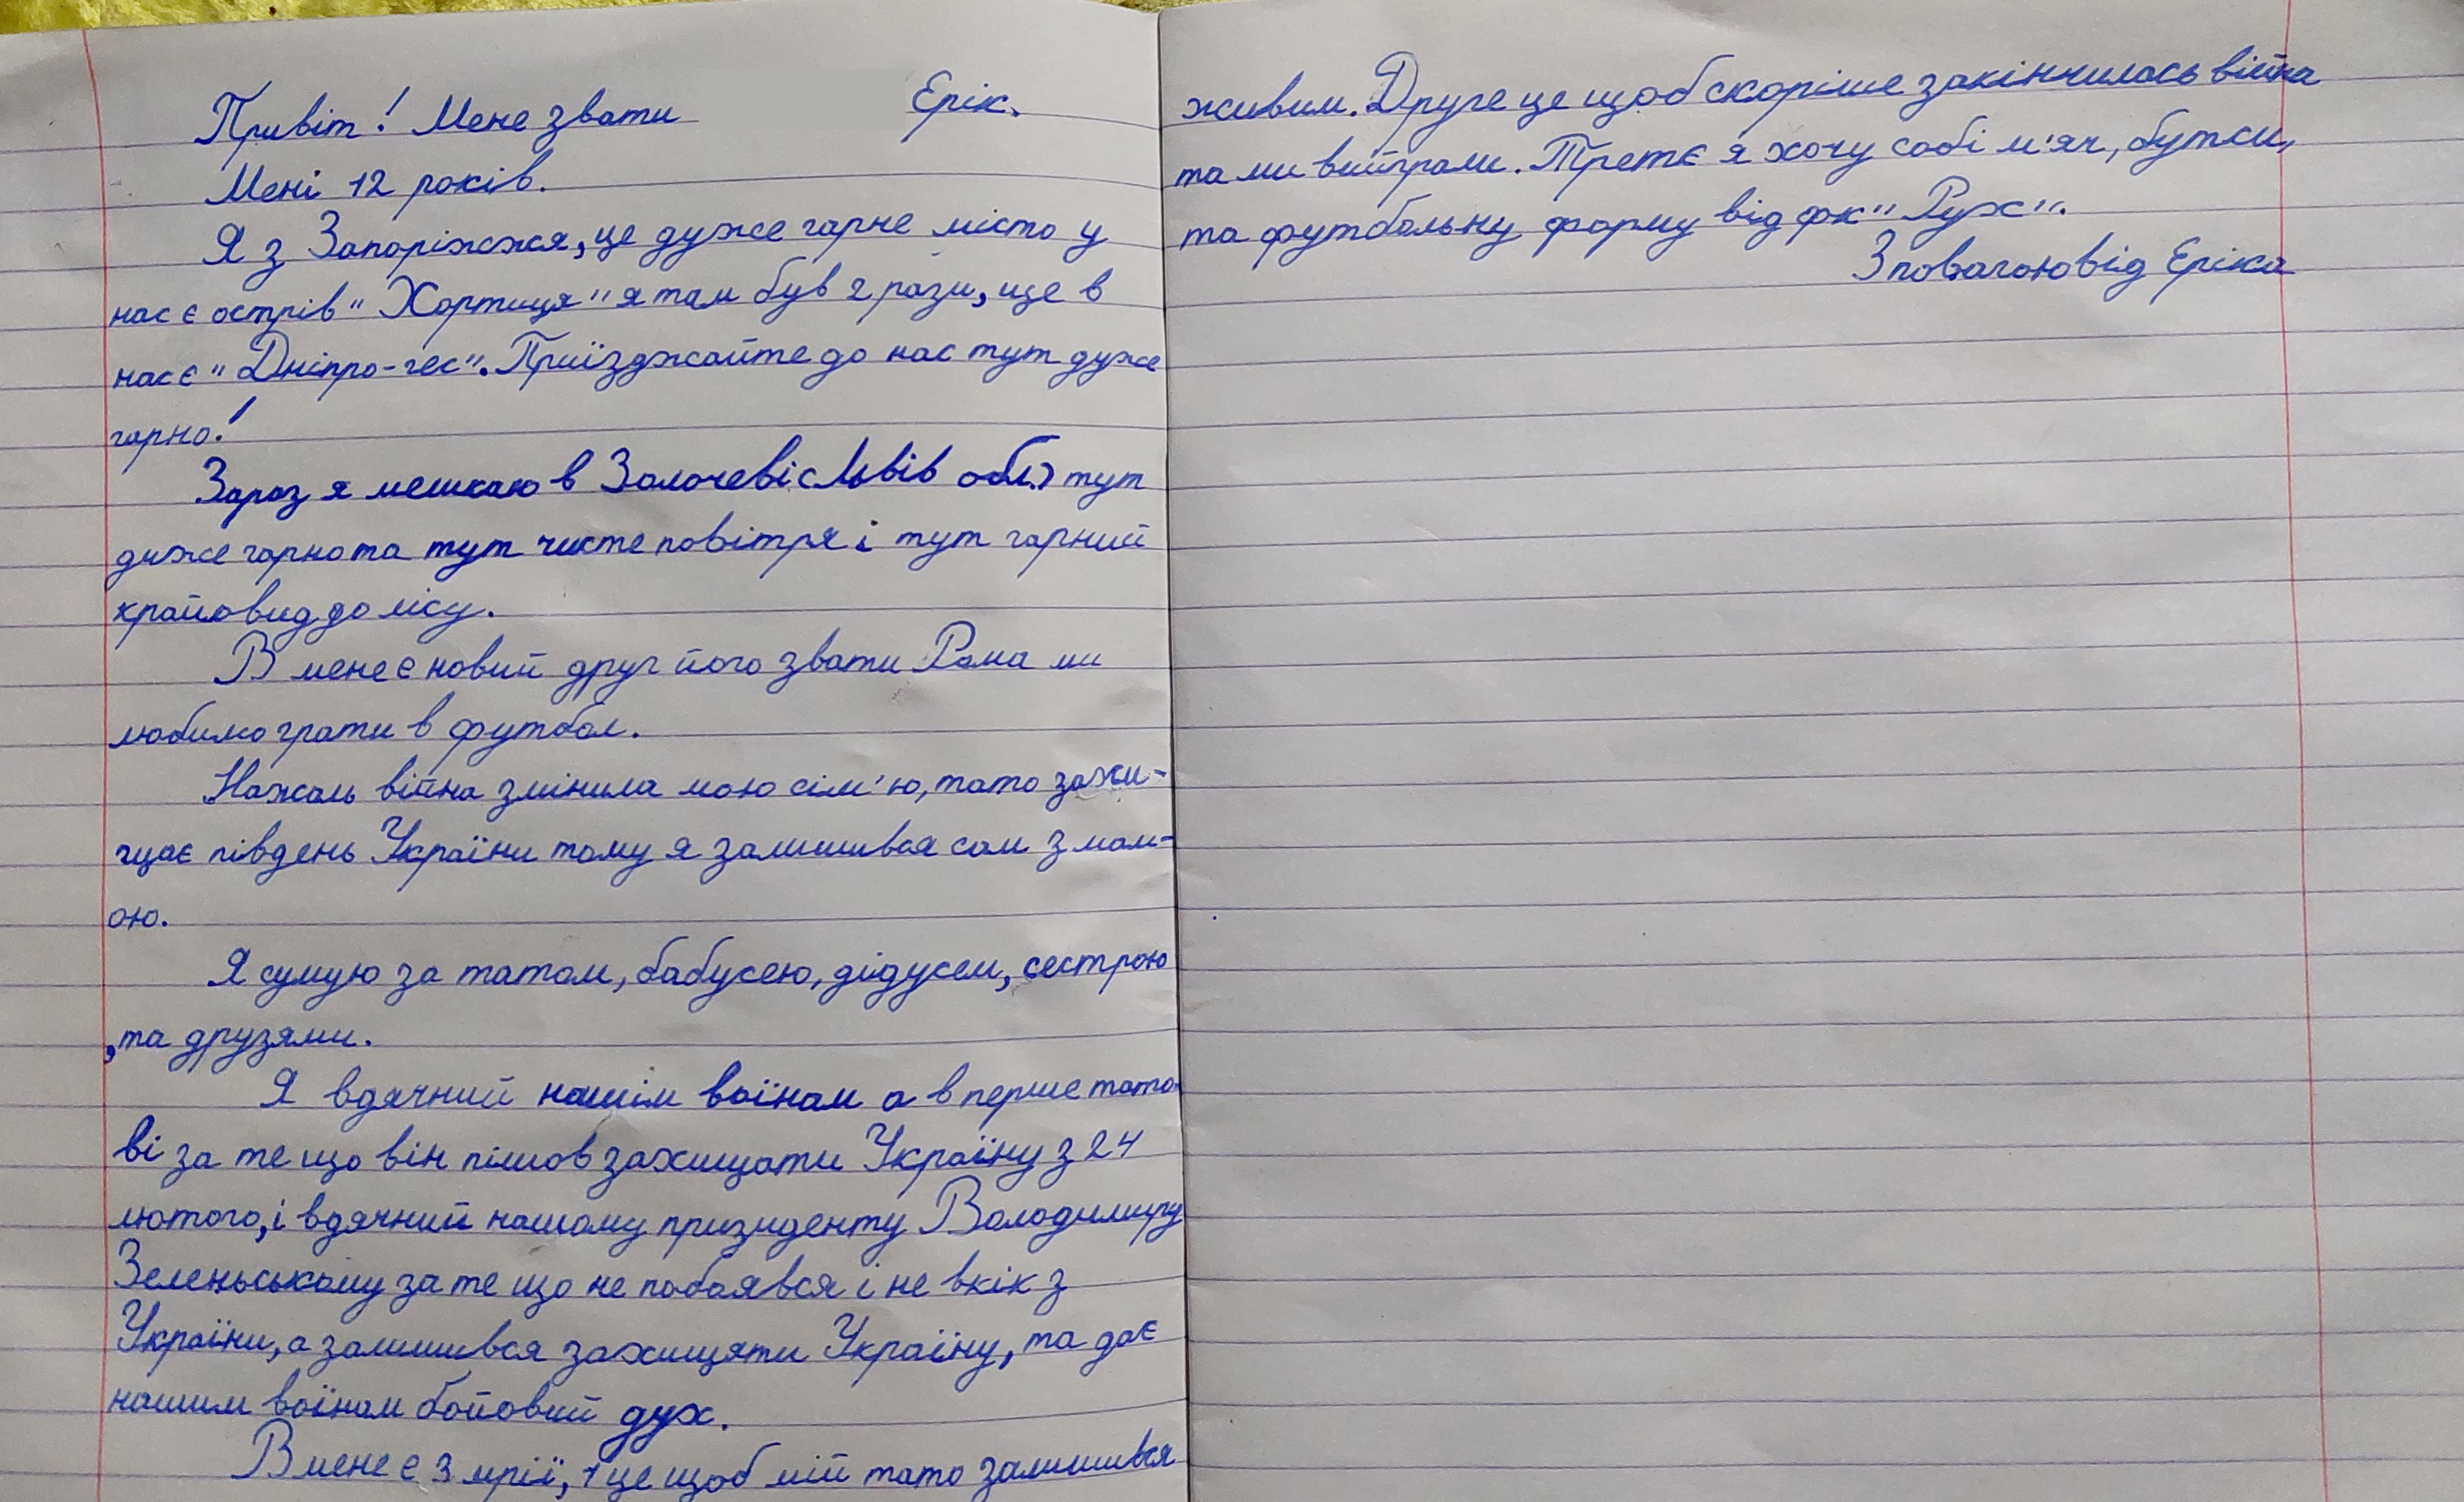 Привіт! Мене звати Ерік.
Мені 12 років.
Я з Запоріжжя, це дуже гарне місто у
нас є острів "Хортиця" я там був 2 рази, ще в
нас є "Дніпро-гес". Приїзджайте до нас тут дуже
гарно!
Зараз я мешкаю в Золочеві (Львів обл.) тут
дуже гарно та тут чисте повітря і тут гарний
крайовид до лісу.
В мене є новий друг його звати Рома ми
любимо грати в футбол.
Нажаль війна змінила мою сім'ю, тато захи-
щає південь України тому я залишився сам з мам-
ою.
Я сумую за татом, бабусею, дідусем, сестрою
, та друзями.
Я вдячний нашім воїнам а в перше тато-
ві за те що він пішов захищати Україну з 24
лютого, і вдячний нашому призиденту Володимиру
Зеленьському за те що не побоявся і не вкік з
України, а залишився захищяти Україну, та дає
нашим воїнам бойовий дух.
В мене є 3 мрії, 1 це щоб мій тато залишився
живим. Друге це щоб скоріше закінчилась війна
та ми вийграли. Третє я хочу собі м'яч, бутси,
та футбольну форму від фк "Рух".
З повагою від Еріка